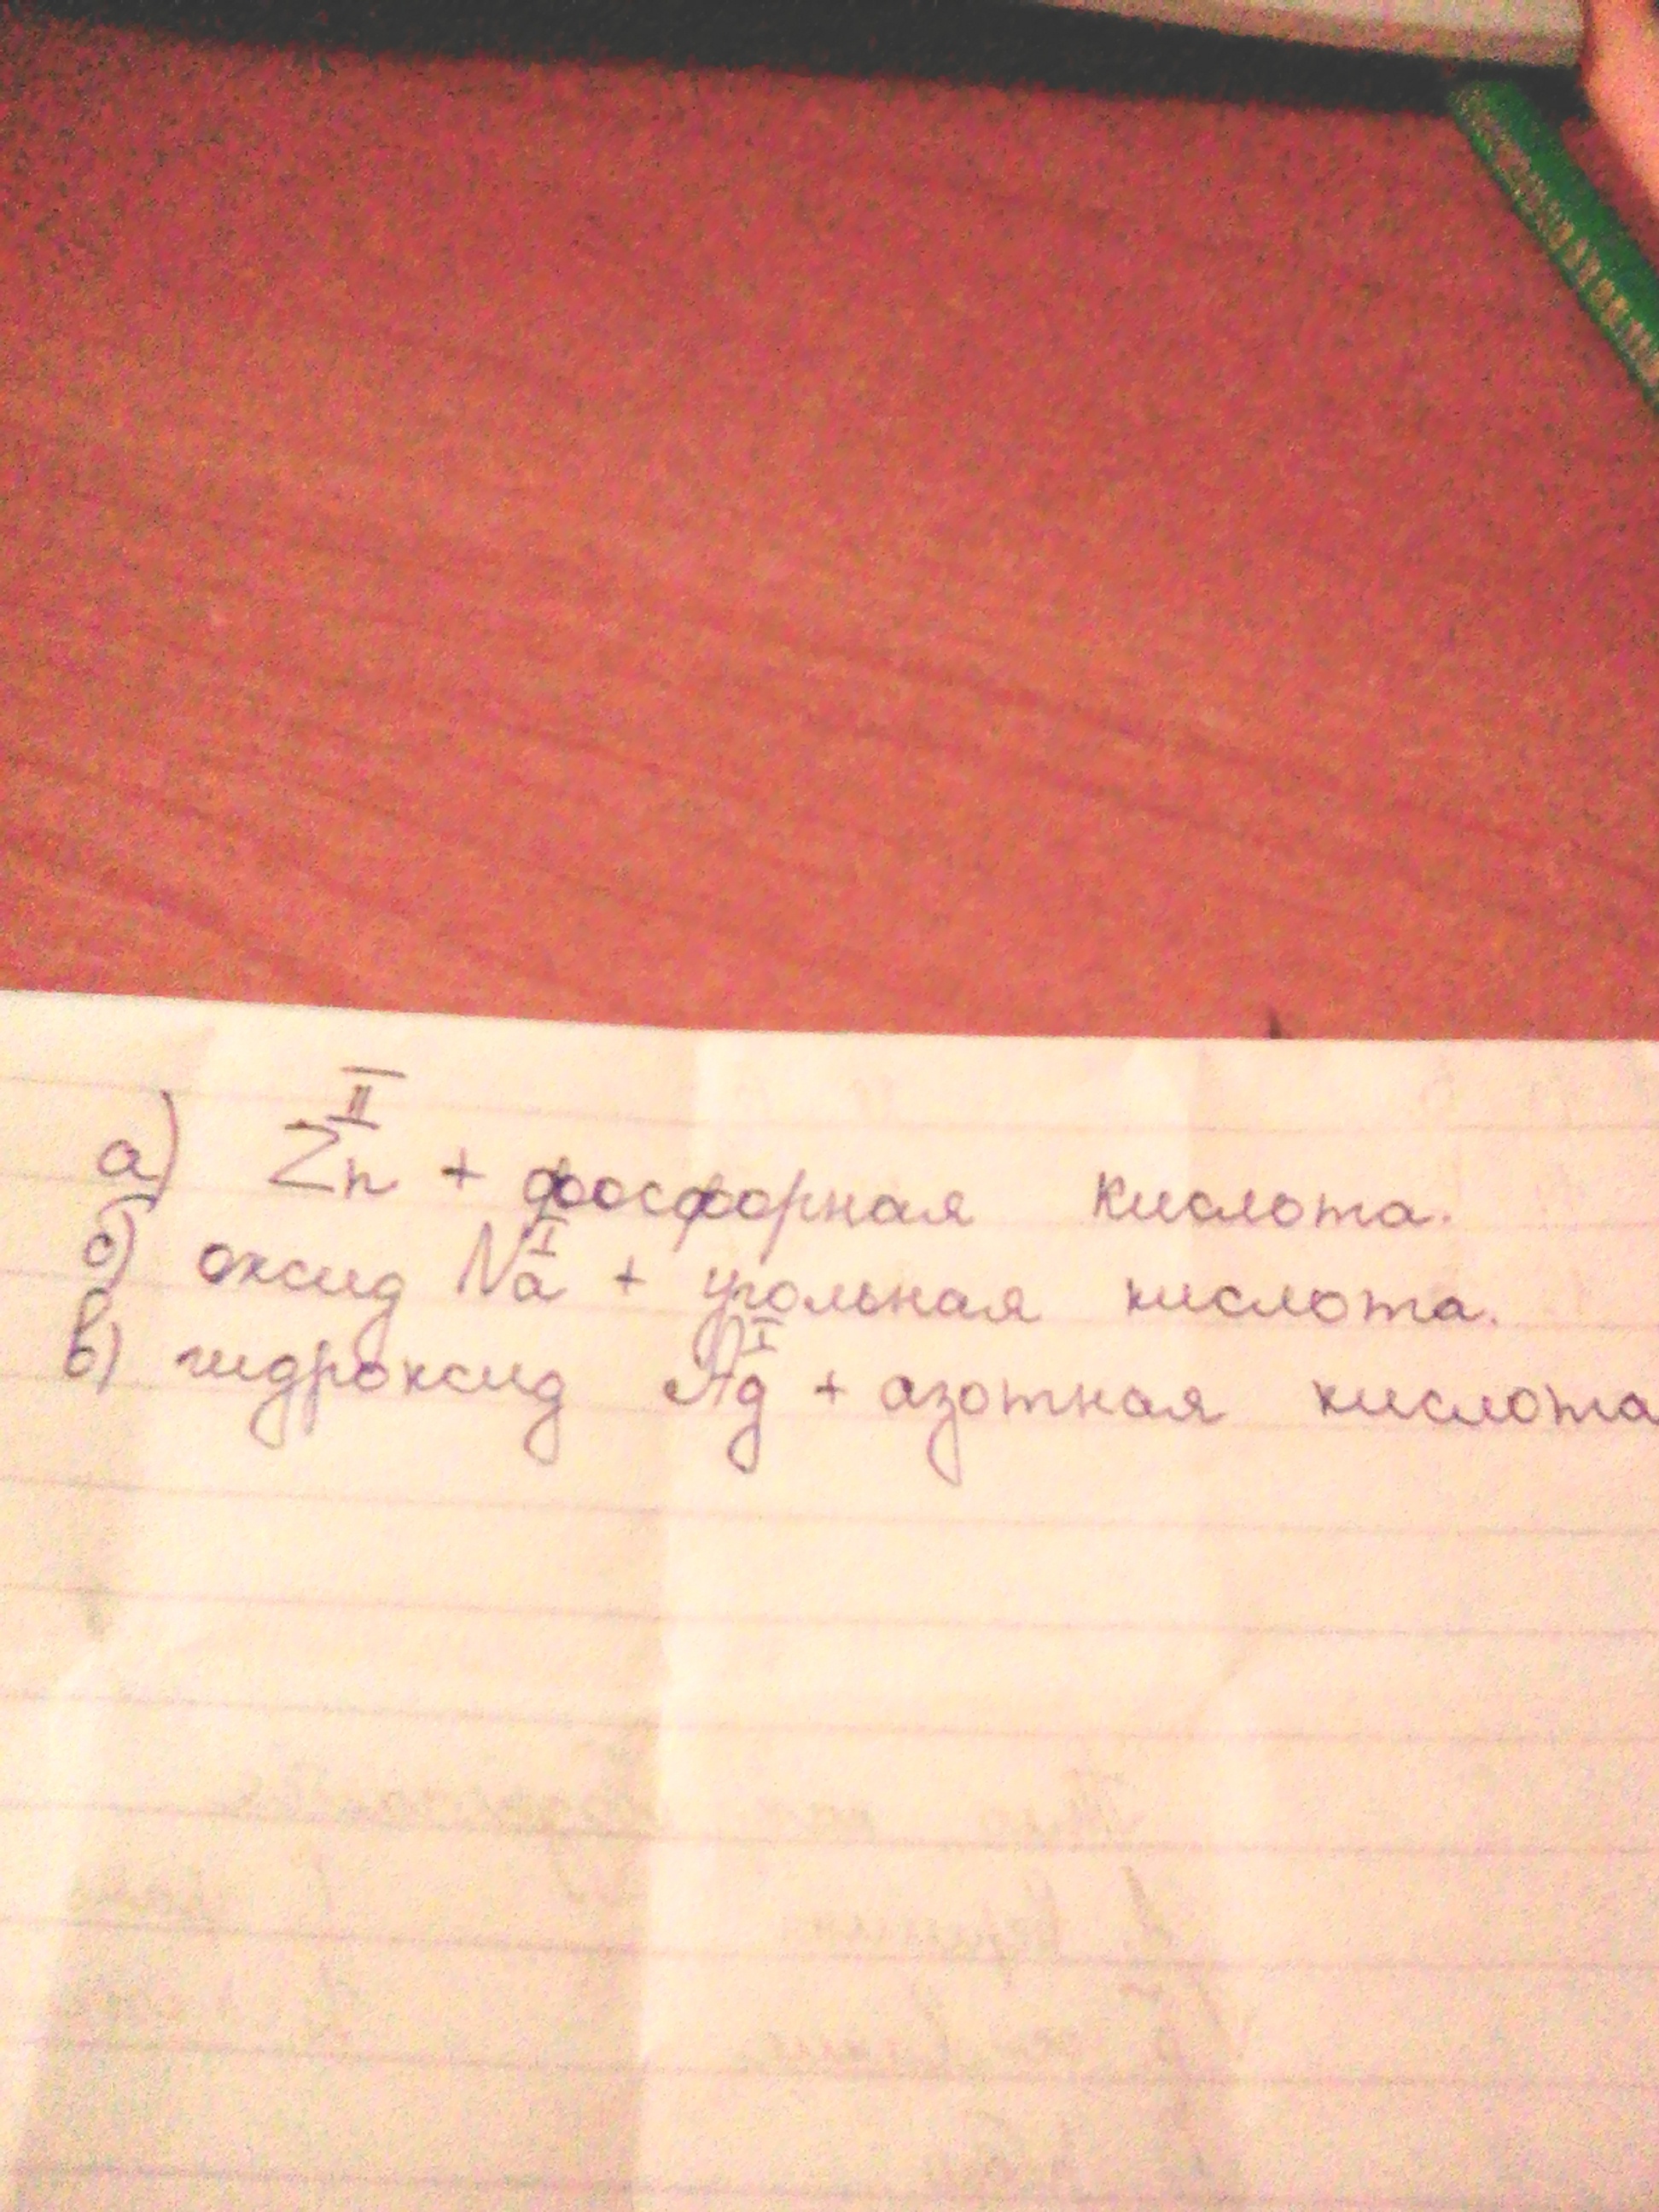 а) Zn II + фосфорная кислота.
б) оксид Na I + угольная кислота.
в) гидроксид Ag I + азотная кислота